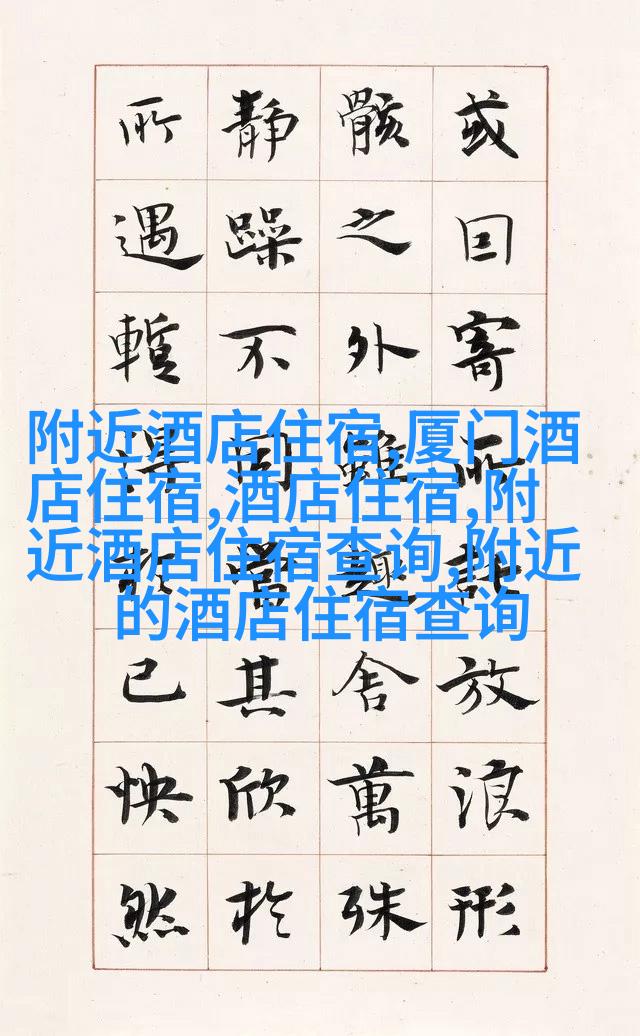 或囙寄所託放浪形
骸之外雖趣舍萬殊
静躁不同當其欣於
所遇暫得於己怏然
附近酒店住宿,厦门酒
店住宿,酒店住宿,附
近酒店住宿查询,附近
的酒店住宿查询